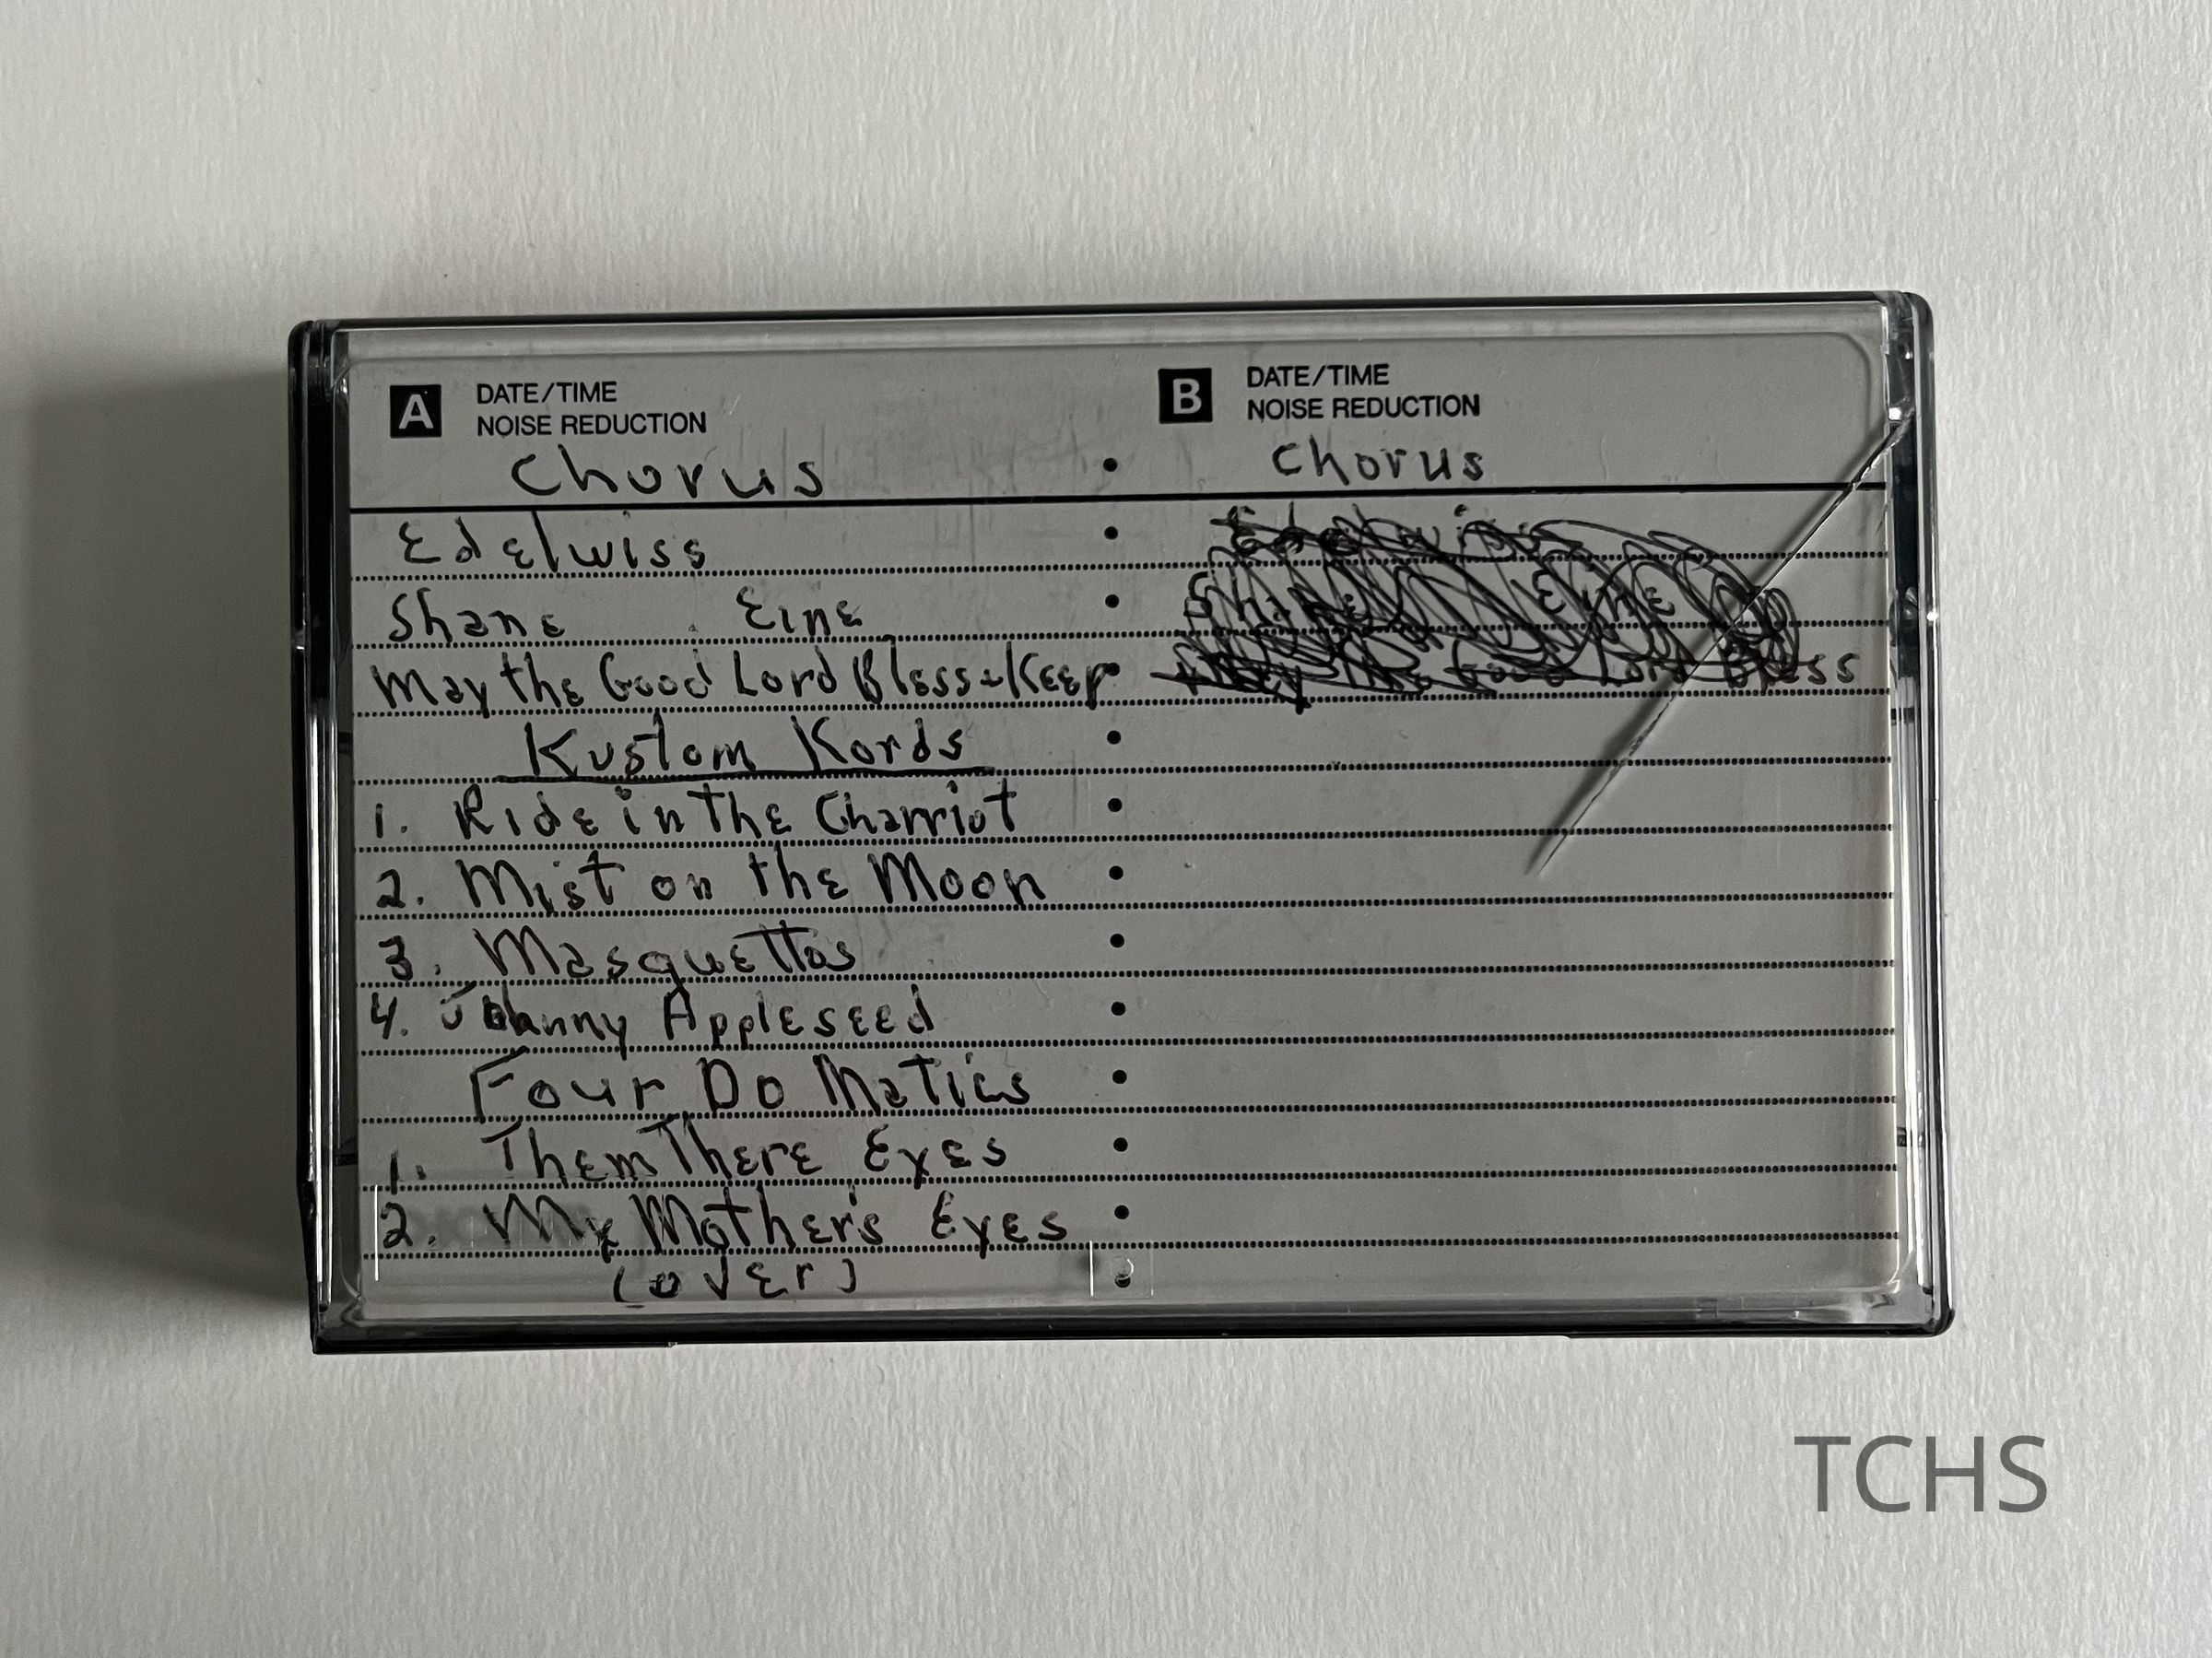 A DATE/TIME
NOISE REDUCTION
Chorus
Edelwiss
Shane Eine
May the Good Lord Bless + Keep
Kustom Kords
1. Ride in The Charriot
2. Mist on the Moon
3. Masquettos
4. Johnny Appleseed
Four Do Matics
1. Them There Eyes
2. My Mother's Eyes
(over)
B DATE/TIME
NOISE REDUCTION
Chorus
Shane Eine
May the Good Lord Bless
TCHS